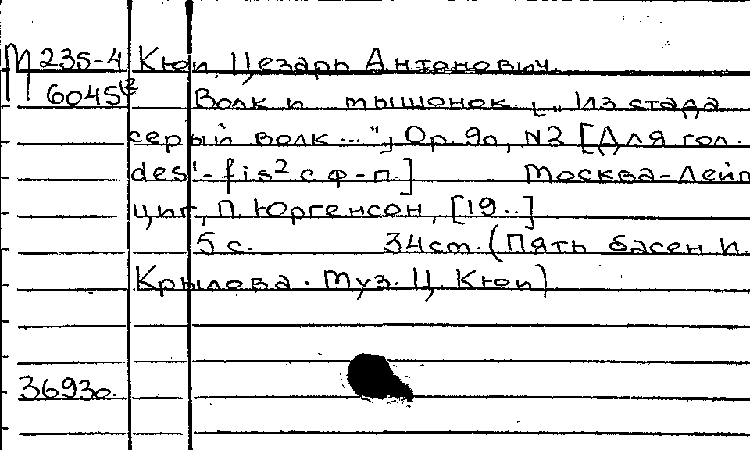 М 235-4 Кюи, Цезарь Антонович.
6045
Волк и мышонок [„Из стада
серый волк..."] Op. 90, N2 [Для гол.
des¹-fis² с ф-п.] Москва-Лейп
циг, П. Юргенсон, [19..]
5 с. 34 cm. (Пять басен И.
Крылова. Муз. Ц. Кюи)
36930